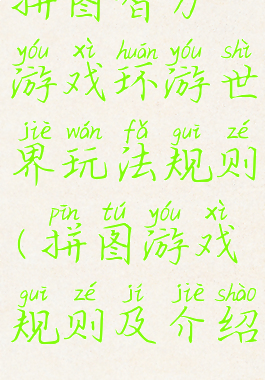 拼图智力
yóu xì huán yóu shì
游戏环游世
jiè wán fǎ guī zé
界玩法规则
pīn tú yóu xì
(拼图游戏
guī zé jí jiè shào
规则及介绍